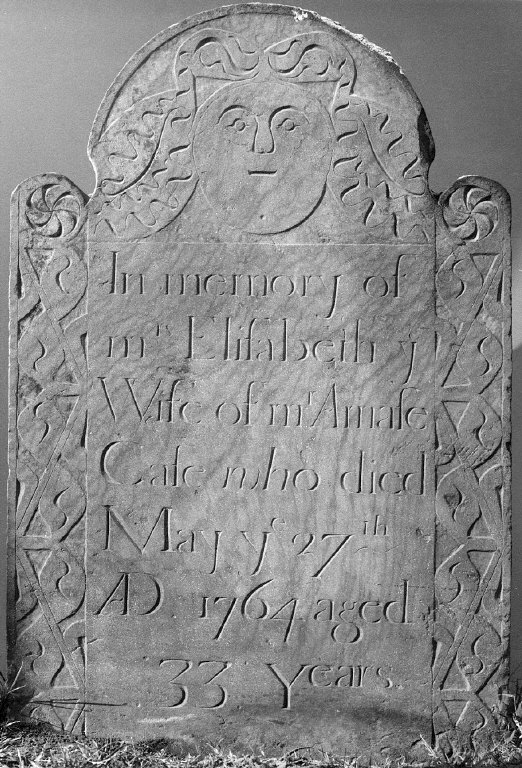 In memory of
mrs Eliſabeth y
Wife of mr Amaſe
Caſe who died
May ye 27th
AD 1764 aged
33 Years.